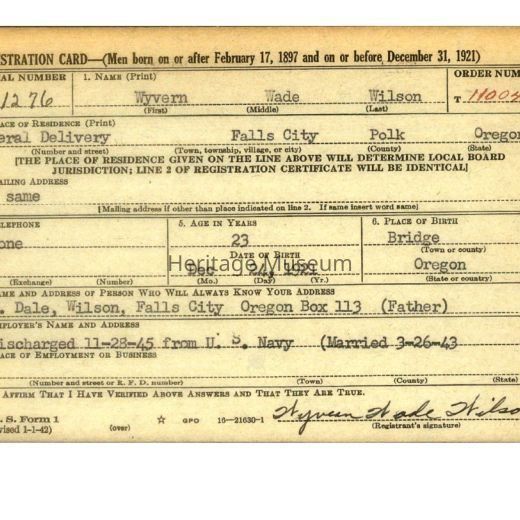 ISTRATION CARD—(Men born on or after February 17, 1897 and on or before December 31, 1921)
AL NUMBER 1. NAME (Print) ORDER NUM
1276 Wyvern Wade Wilson T 11005
(First) (Middle) (Last)
ACE OF RESIDENCE (Print)
eral Delivery Falls City Polk Orego
(Number and street) (Town, township, village, or city) (County) (State)
[THE PLACE OF RESIDENCE GIVEN ON THE LINE ABOVE WILL DETERMINE LOCAL BOARD
JURISDICTION; LINE 2 OF REGISTRATION CERTIFICATE WILL BE IDENTICAL]
AILING ADDRESS
same
[Mailing address if other than place indicated on line 2. If same insert word same]
ELEPHONE 5. AGE IN YEARS 6. PLACE OF BIRTH
one 23 Bridge
DATE OF BIRTH (Town or county)
Heritage Museum
Dec 1921 Oregon
(Exchange) (Number) (Mo.) (Day) (Yr.) (State or country)
AME AND ADDRESS OF PERSON WHO WILL ALWAYS KNOW YOUR ADDRESS
. Dale, Wilson, Falls City Oregon Box 113 (Father)
MPLOYER'S NAME AND ADDRESS
ischarged 11-28-45 from U. S. Navy (Married 3-26-43
ACE OF EMPLOYMENT OR BUSINESS
(Number and street or R. F. D. number) (Town) (County) (State)
AFFIRM THAT I HAVE VERIFIED ABOVE ANSWERS AND THAT THEY ARE TRUE.
. S. Form 1
vised 1-1-42) (over) ☆ GPO 16—21630-1 Wyvern Wade Wilso
(Registrant's signature)